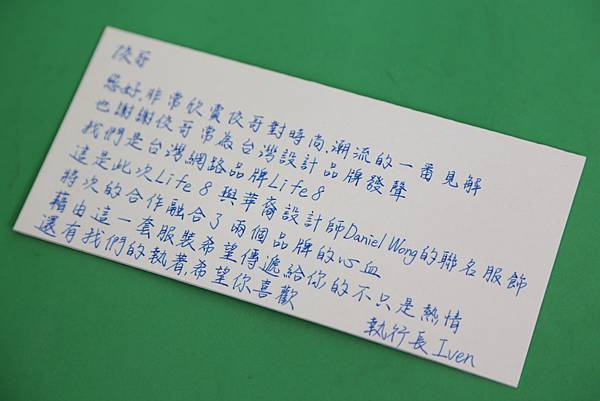 俊哥
您好,非常欣賞俊哥對時尚.潮流的一番見解
也謝謝俊哥常為台灣設計品牌發聲
我們是台灣網路品牌Life8
這是此次Life8與華裔設計師Daniel Wong的聯名服飾
特次的合作融合了兩個品牌的心血
藉由這一套服裝希望傳遞給你的不只是熱情
還有我們的執著,希望你喜歡
執行長Iven